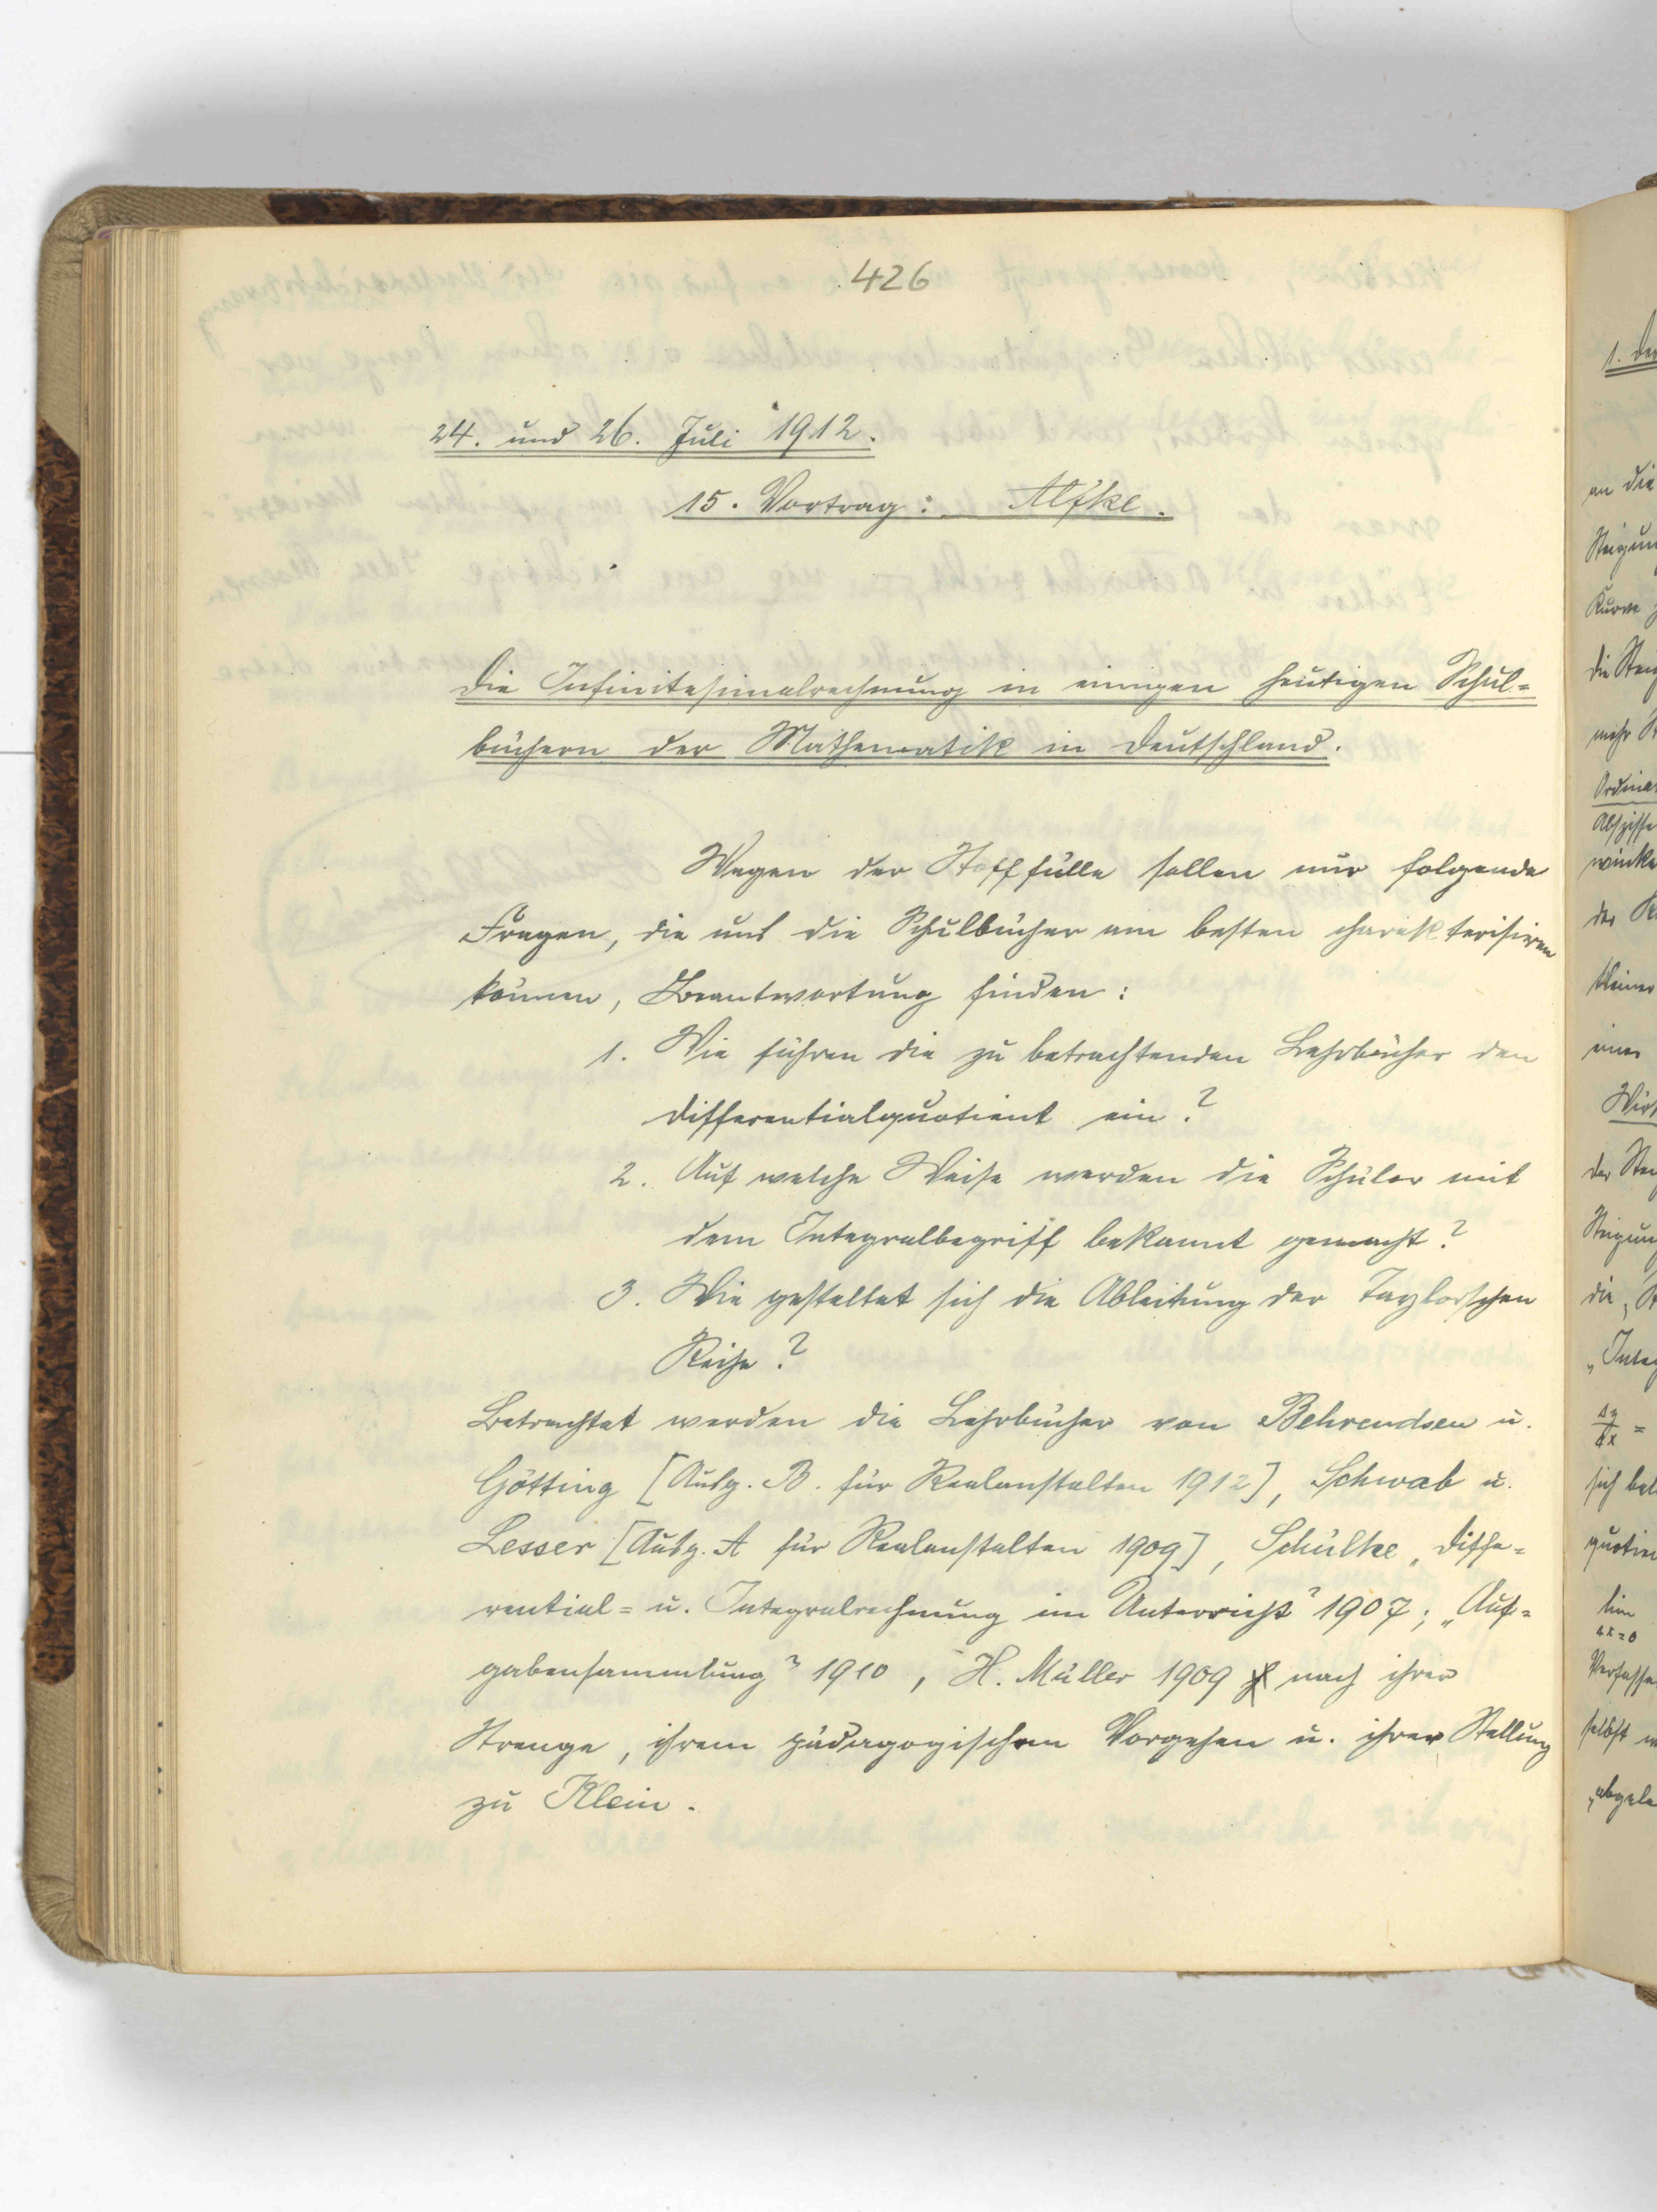 426
24. und 26. Juli 1912.
15. Vortrag: Alfke.
Die Infinitesimalrechnung in einigen heutigen Schul=
büchern der Mathematik in Deutschland.
Wegen der Stoffülle sollen nur folgende
Fragen, die uns die Schulbücher am besten charakterisiren
können, Beantwortung finden:
1. Wie führen die zu betrachtenden Lehrbücher den
Differentialquotient ein?
2. Auf welche Weise werden die Schüler mit
dem Integralbegriff bekannt gemacht?
3. Wie gestaltet sich die Ableitung der Taylorschen
Reihe?
Betrachtet werden die Lehrbücher von Behrendsen u.
Götting [Ausg. B. für Realanstalten 1912], Schwab u.
Lesser [Ausg. A für Realanstalten 1909], Schülke „Diffe=
rential= u. Integralrechnung im Unterricht" 1907; „Auf=
gabensammlung" 1910, H. Müller 1909 nach ihrer
Strenge, ihrem pädagogischen Vorgehen u. ihrer Stellung
zu Klein.
1. Der
an die
Steigun
Kurve
die Stei
mehr
Ordina
Abszisse
winke
der
kleiner
einer
Wir
der Stei
Steigung
die
„Integ
Δy/Δx =
sich bel
quotien
lim
Δx=0
Verfasse
selbst
abgele